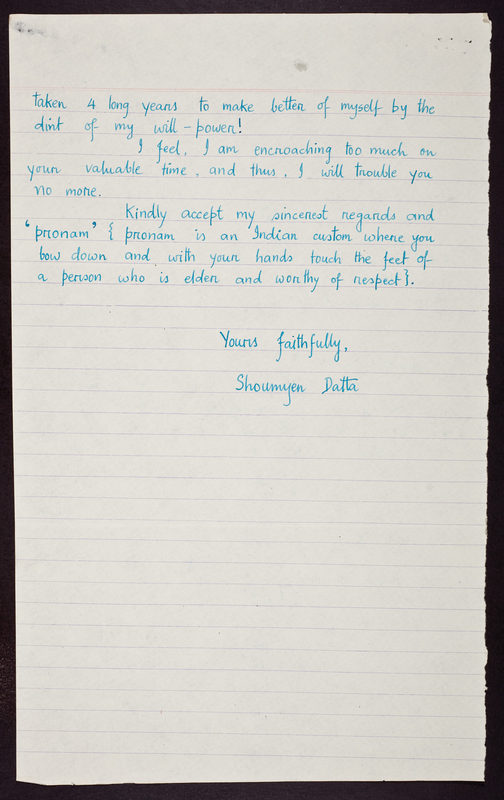 taken 4 long years to make better of myself by the
dint of my will-power!
I feel, I am encroaching too much on
your valuable time, and thus, I will trouble you
no more.
Kindly accept my sincerest regards and
'pronam' { pronam is an Indian custom where you
bow down and with your hands touch the feet of
a person who is elder and worthy of respect}.
Yours faithfully,
Shoumyen Datta